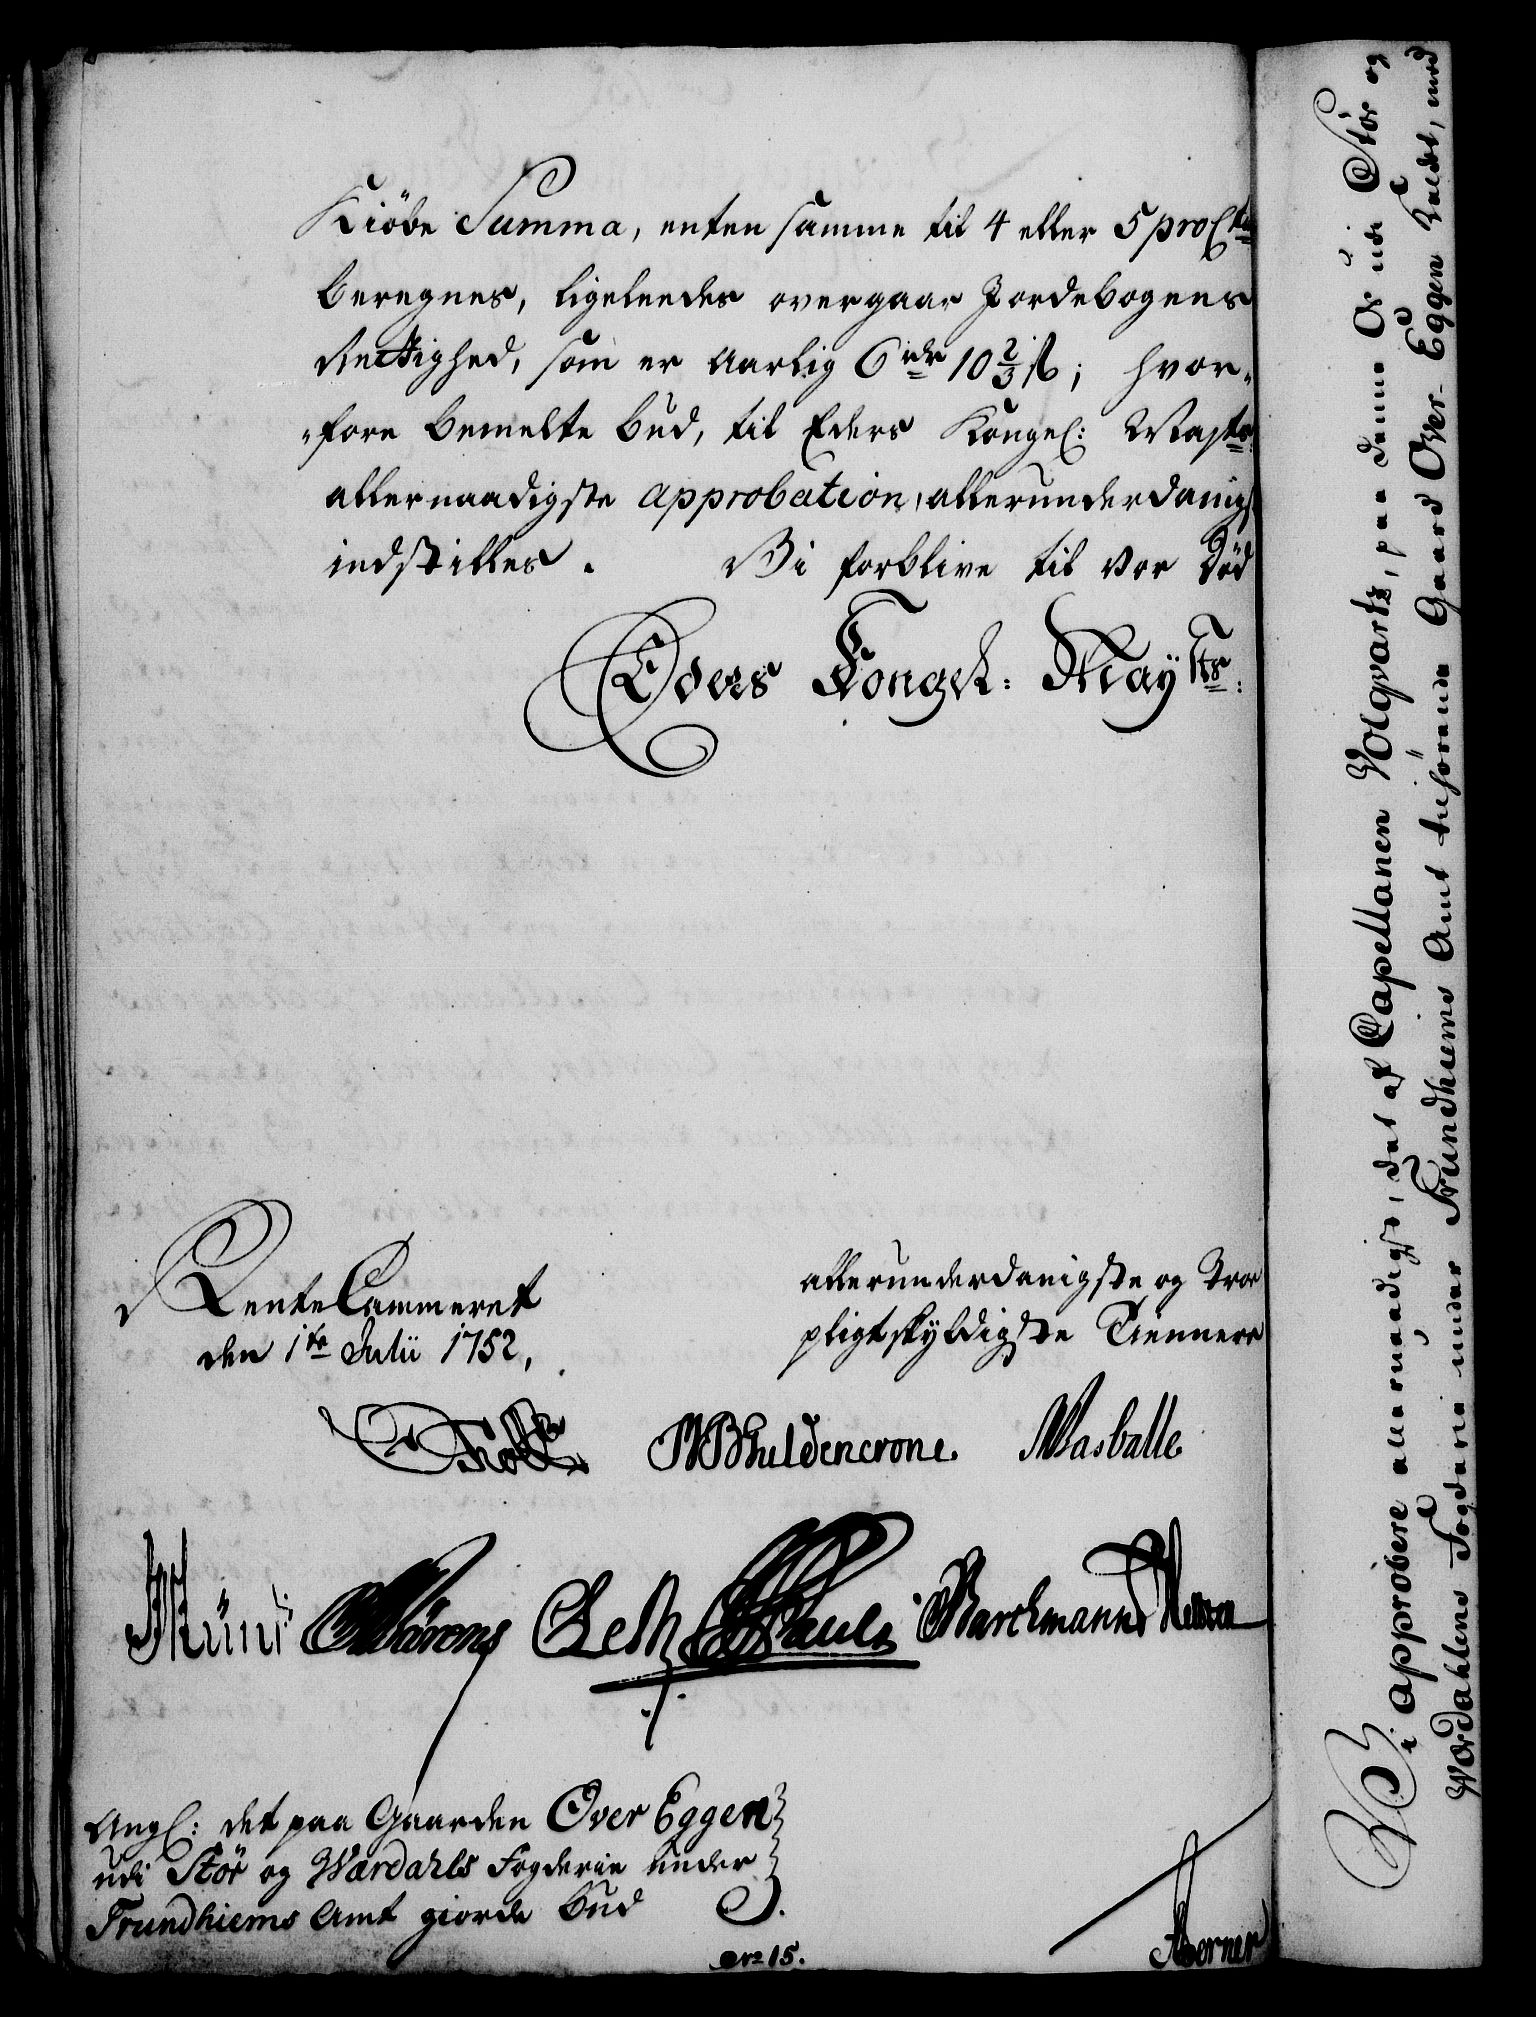 Kiöbe Summa, enten samme til 4 eller 5 proCto
beregnes, ligeleedes overgaar Jordebogens
Rettighed, som er aarlig 6 rdr 10 2/3 ß; hvor-
-fore bemelte bud, til Eders Kongel: Mayts
allernaadigste approbation, allerunderdanigst
indstilles. Vi forblive til vor Död
Eders Kongel: Mayts:
Rente Cammeret
den 1te Julii 1752,
allerunderdanigste og Troe
pligtskyldigste Tienner
Holst
MBhuldencrone. Masballe
Barchmann
Angl: det paa Gaarden Over Eggen
udi Stör og Værdahls Fogderie under
Trundhiems Amt giorde bud
No 15.
Vi approbere allernaadigst, det af Capellanen Volqvartz, paa denne Os udi Stör og
Værdahlens Fogderie under Trundhiems Amt tilhörende Gaard Over-Eggen kaldet, med